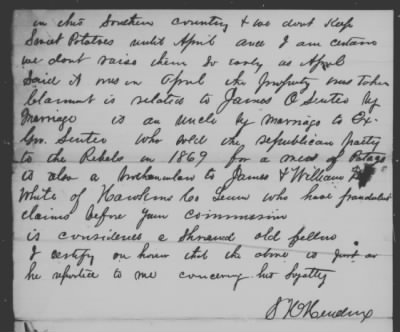 in this Southern country & we dont Keep
Sweet Potatoes until April and I am certain
we dont raise them so early as April
Said it was in April the property was taken
Claimant is related to James O Senter by
Marriage is an uncle by marriage to Ex-
Gov. Senter who sold the republican party
to the Rebels in 1869 for a mess of Potage
is also a brotherinlaw to James & William
White of Hawkins Co Tenn who have fraudulent
claims before your commission
is considered a shrewd old fellow
I certify on honor that the above is just as
he reported to me concerning his loyalty
Hendrix